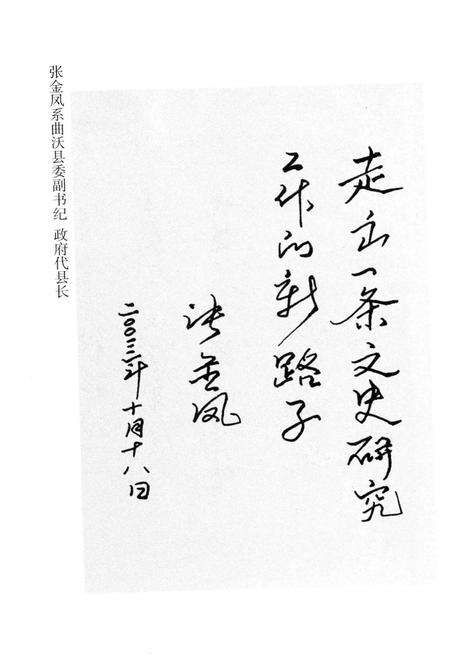 走出一条文史研究
工作的新路子
张金凤
二〇〇三年十月十八日
张金凤系曲沃县委副书纪 政府代县长